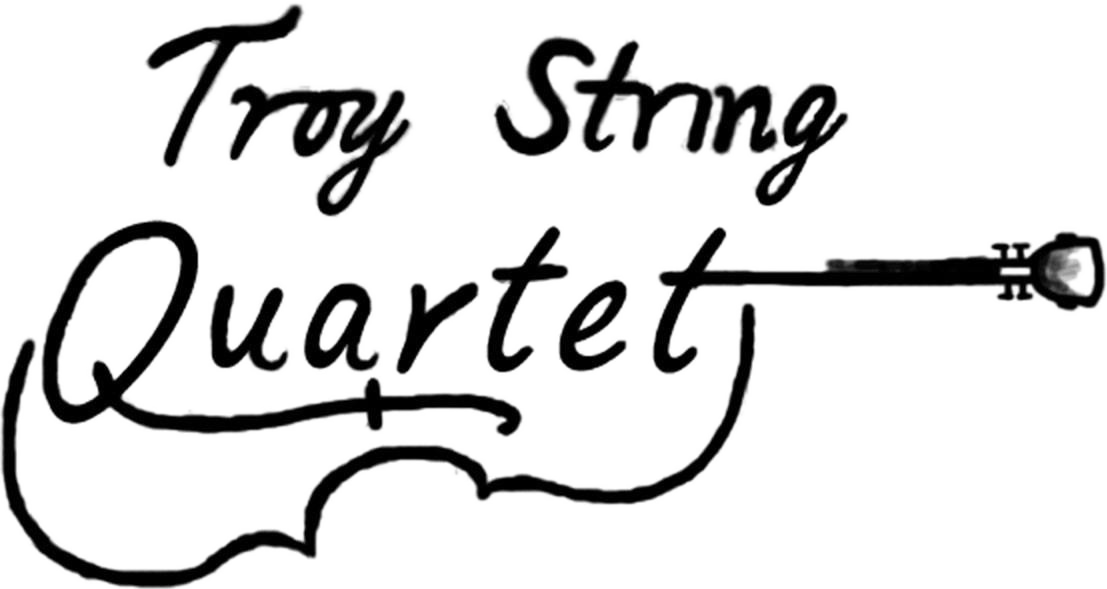 Troy String
Quartet